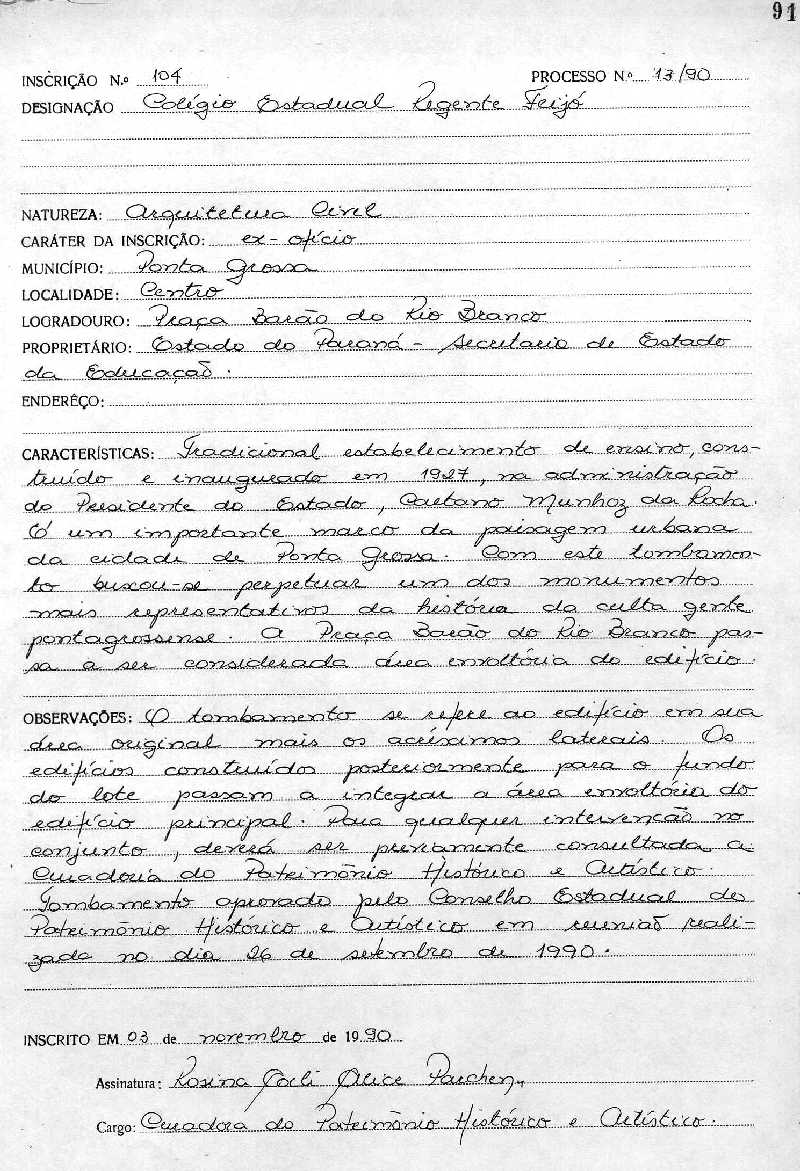 91
INSCRIÇÃO N.º 104 PROCESSO N.º 13/90
DESIGNAÇÃO Colégio Estadual Regente Feijó
NATUREZA: Arquitetura Civil
CARÁTER DA INSCRIÇÃO: ex-ofício
MUNICÍPIO: Ponta Grossa
LOCALIDADE: Centro
LOGRADOURO: Praça Barão do Rio Branco
PROPRIETÁRIO: Estado do Paraná - Secretaria de Estado
da Educação.
ENDERÊÇO:
CARACTERÍSTICAS: Tradicional estabelecimento de ensino, cons-
truído e inaugurado em 1927, na administração
do Presidente do Estado, Caetano Munhoz da Rocha.
É um importante marco da paisagem urbana
da cidade de Ponta Grossa. Com este tombamen-
to buscou-se perpetuar um dos monumentos
mais representativos da história da culta gente
pontagrossense. A Praça Barão do Rio Branco pas-
sa a ser considerada área envoltória do edifício.
OBSERVAÇÕES: O tombamento se refere ao edifício em sua
área original mais os acréximos laterais. Os
edifícios construídos posteriormente para o fundo
do lote passam a integrar a área envoltória do
edifício principal. Para qualquer intervenção no
conjunto, deverá ser previamente consultada a
Curadoria do Patrimônio Histórico e Artístico.
Tombamento aprovado pelo Conselho Estadual do
Patrimônio Histórico e Artístico em reunião reali-
zada no dia 26 de setembro de 1990.
INSCRITO EM 03 de novembro de 1990
Assinatura: Rosina Alice Parchen
Cargo: Curadora do Patrimônio Histórico e Artístico.